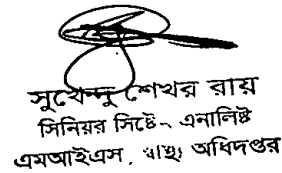 সুখেন্দু শেখর রায়
সিনিয়র সিষ্টে- এনালিষ্ট
এমআইএস, স্বাস্থ্য অধিদপ্তর